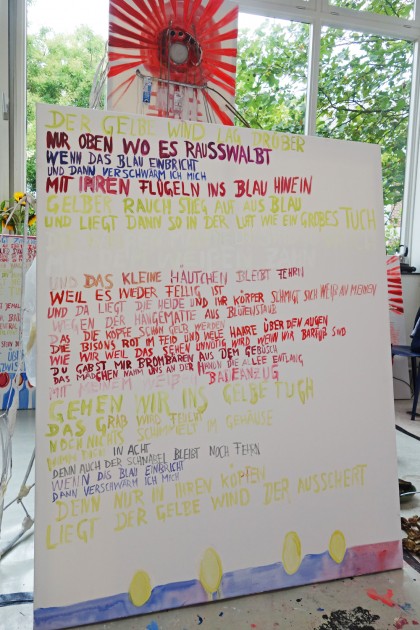 DER GELBE WIND LAG DRÜBER
NUR OBEN WO ES RAUSSWALBT
WENN DAS BLAU EINBRICHT
UND DANN VERSCHWÄRM ICH MICH
MIT IHREN FLÜGELN INS BLAU HINEIN
GELBER RAUCH STIEG AUF AUS BLAU
UND LIEGT DANN SO IN DER LUFT WIE EIN GROßES TUCH
UND DAS KLEINE HÄUTCHEN BLEIBT FEHRN
WEIL ES WIEDER FELLIG IST
UND DA LIEGT DIE HEIDE UND IHR KÖRPER SCHMIGT SICH WEIß AN MEINEN
WEGEN DER HÄNGEMATTE AUS BLÜTENSTAUB
DAS DIE KÖPFE SCHÖN GELB WERDEN
DIE BISONS ROT IM FELD UND VIELE HAARE ÜBER DEN AUGEN
WIE WIR WEIL DAS GEHEN UNNÖTIG WIRD WENN WIR BARFUß SIND
DU GABST MIR BROMBÄREN AUS DEM GEBÜSCH
DAS MÄDCHEN NAHM UNS AN DER HAND DIE ALLEE ENTLANG
MIT MEINEM WEIßEN BADEANZUG
GEHEN WIR INS GELBE TUCH
DAS GRAB WIRD FEHLEN
NOCH NICHTS IM GEHÄUSE
IN ACHT
DENN AUCH DER SCHNABEL BLEIBT NOCH FEHRN
WENN DAS BLAU EINBRICHT
DANN VERSCHWÄRM ICH MICH
DENN NUR IN IHREN KÖPFEN
LIEGT DER GELBE WIND DER AUSSCHERT